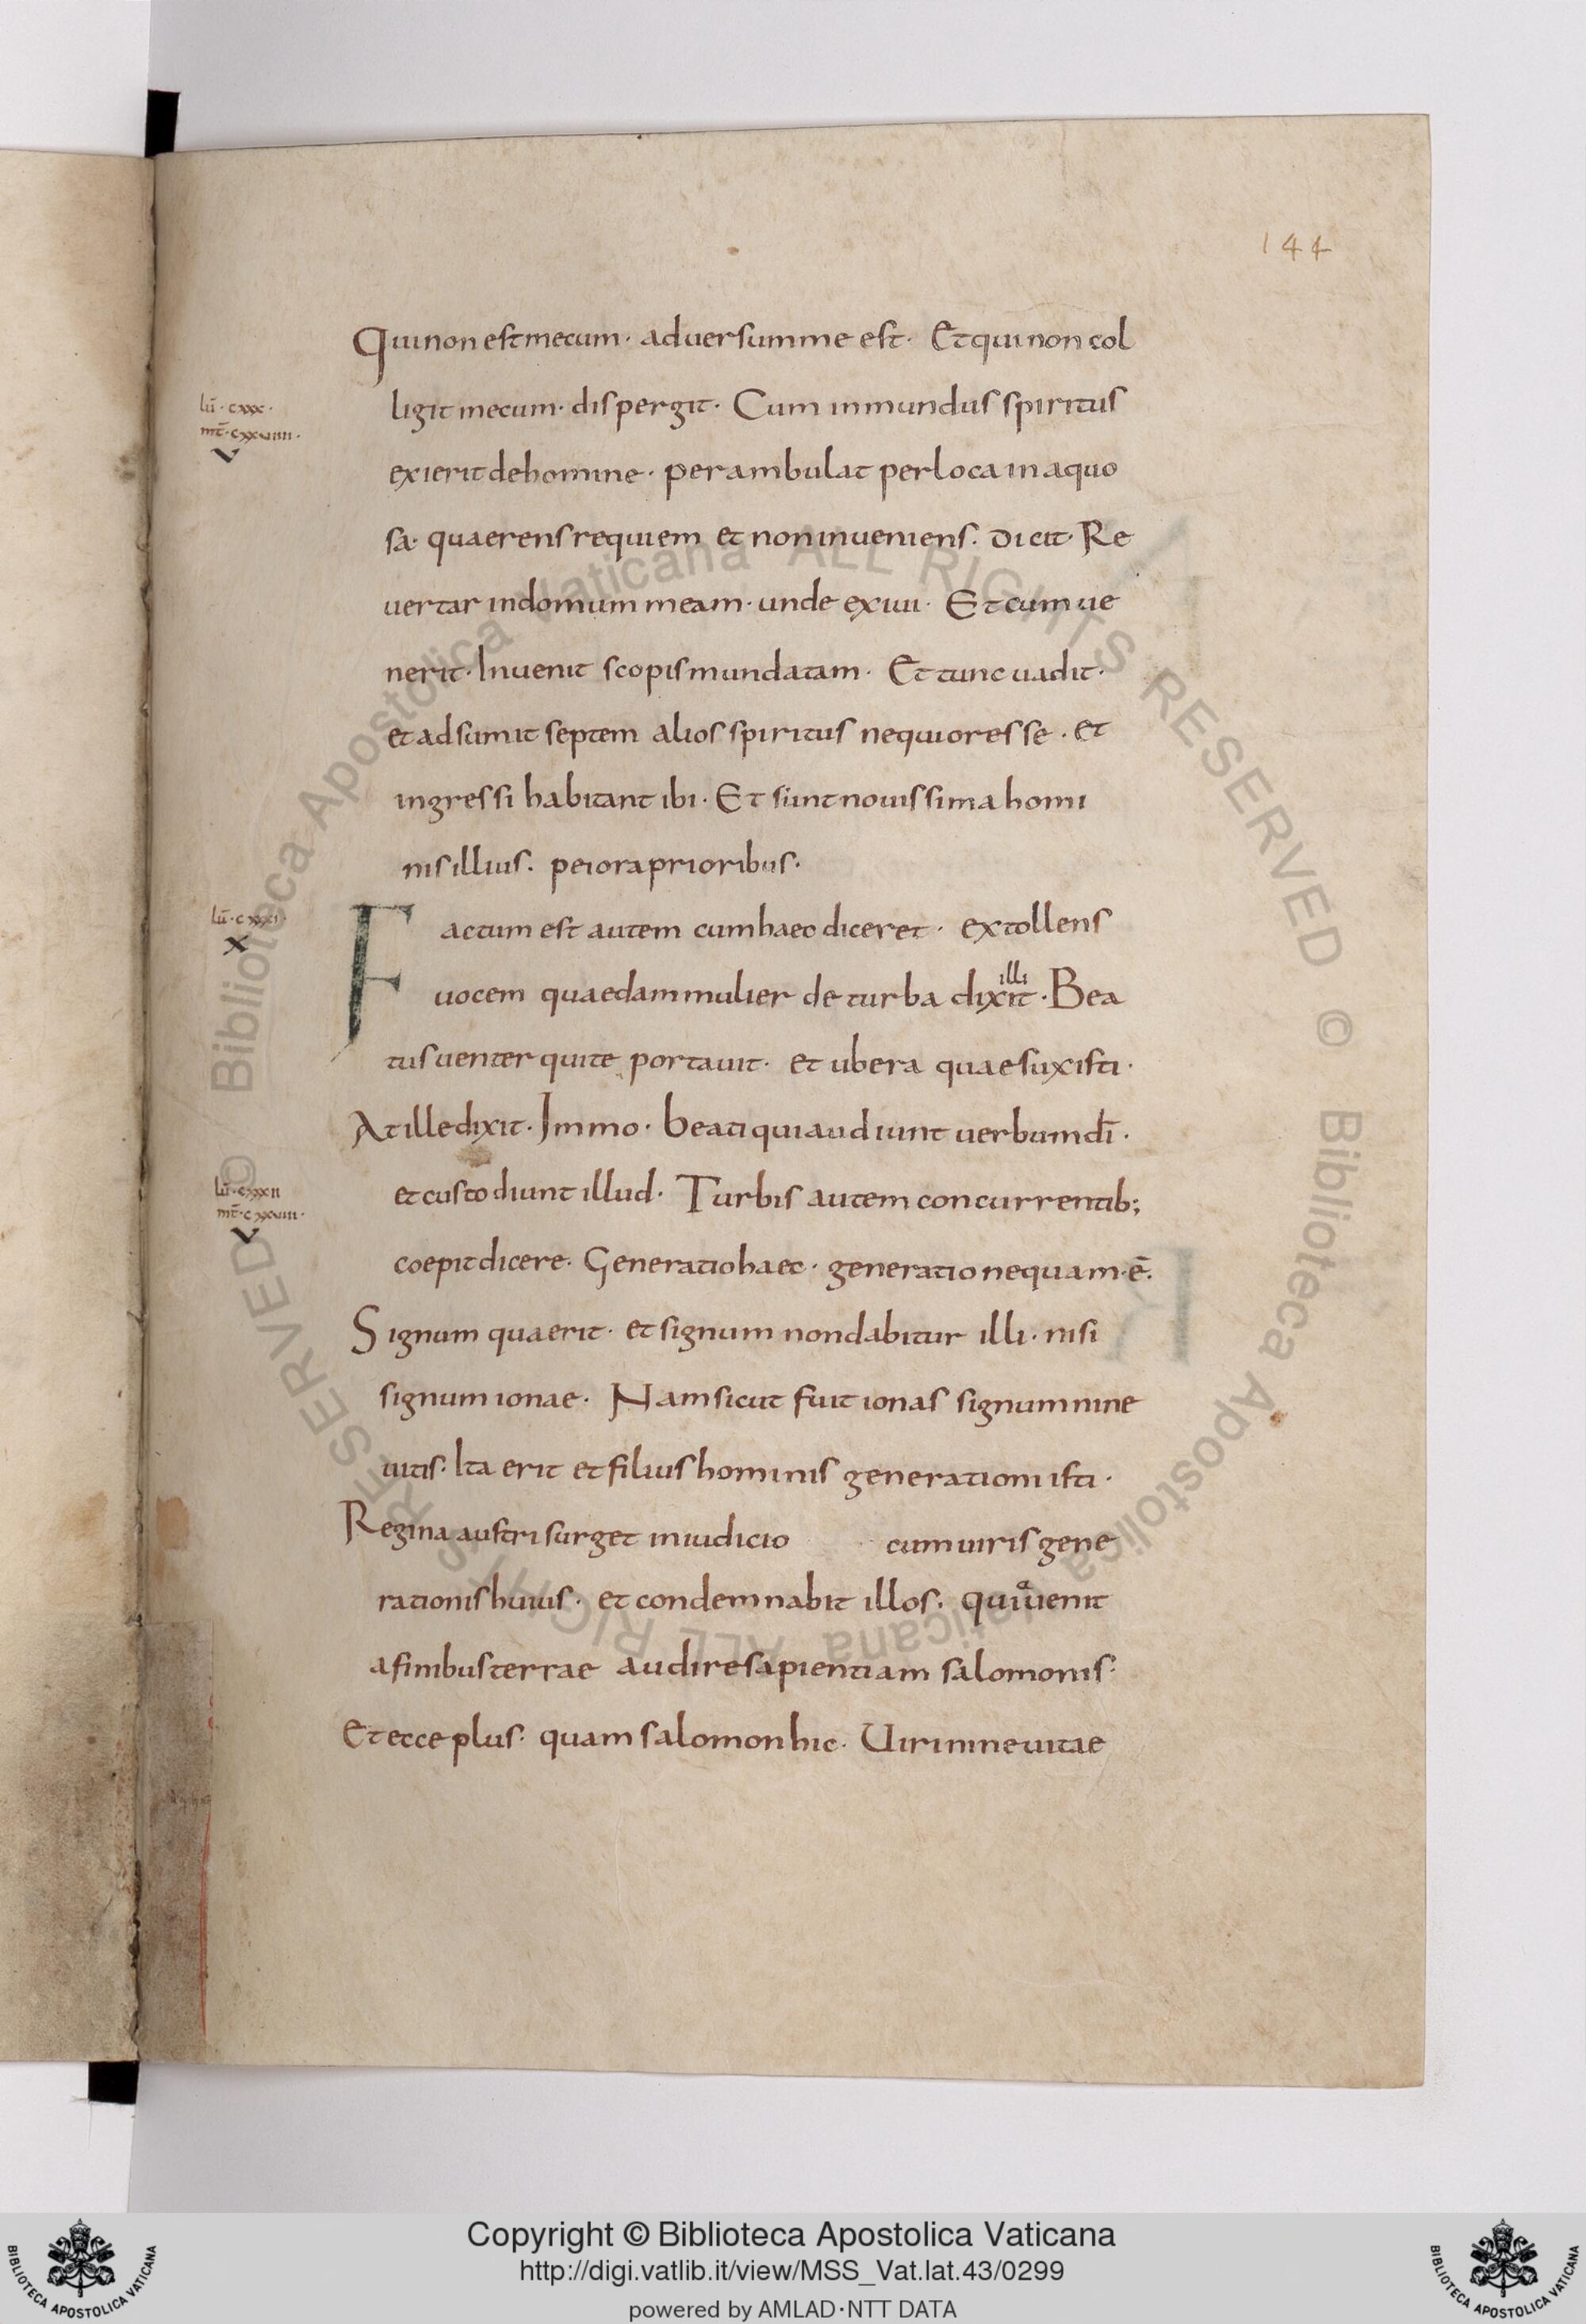 144
Qui non est mecum· aduersum me est· Et qui non col
lū· cxxx·
ligit mecum· dispergit· Cum inmundus spiritus
mt̄· cxxuiiii·
V
exierit de homine· perambulat per loca inaquo
sa· quaerens requiem et non inueniens· dicit· Re
uertar in domum meam· unde exiui· Et cum ue
nerit· Inuenit scopis mundatam· Et tunc uadit·
et adsumit septem alios spiritus nequiores se· et
ingressi habitant ibi· Et sunt nouissima homi
nis illius· peiora prioribus·
lū· cxxxi·
X
Factum est autem cum haec diceret· extollens
illi
uocem quaedam mulier de turba dixit· Bea
tus uenter qui te portauit· et ubera quae suxisti·
At ille dixit· Immo· beati qui audiunt uerbum dī·
lū· cxxxii
et custodiunt illud· Turbis autem concurrentib;
mt̄· cxxuiii·
V
coepit dicere· Generatio haec· generatio nequam· ē·
Signum quaerit· et signum non dabitur illi· nisi
signum ionae· Nam sicut fuit ionas signum nine
uitis· Ita erit et filius hominis generationi isti·
Regina austri surget in iudicio cum uiris gene
rationis huius· et condemnabit illos· qui uenit
a
a finibus terrae audire sapientiam salomonis·
Et ecce plus· quam salomon hic· Uiri nineuitae
© Biblioteca Apostolica Vaticana ALL RIGHTS RESERVED © Biblioteca Apostolica Vaticana ALL RIGHTS RESERVED
Copyright © Biblioteca Apostolica Vaticana
http://digi.vatlib.it/view/MSS_Vat.lat.43/0299
powered by AMLAD·NTT DATA
BIBLIOTECA APOSTOLICA VATICANA
BIBLIOTECA APOSTOLICA VATICANA